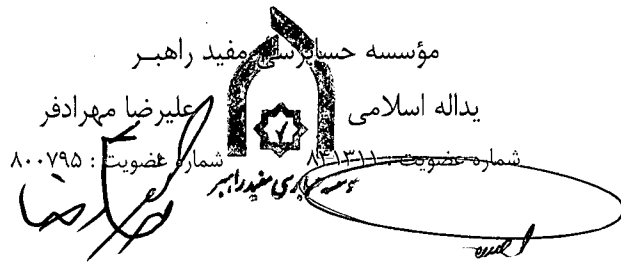 مؤسسه حسابرسی مفید راهبر
یداله اسلامی علیرضا مهرادفر
شماره عضویت : ۸۴۱۳۱۱ شماره عضویت : ۸۰۰۷۹۵
موسسه حسابرسی مفید راهبر